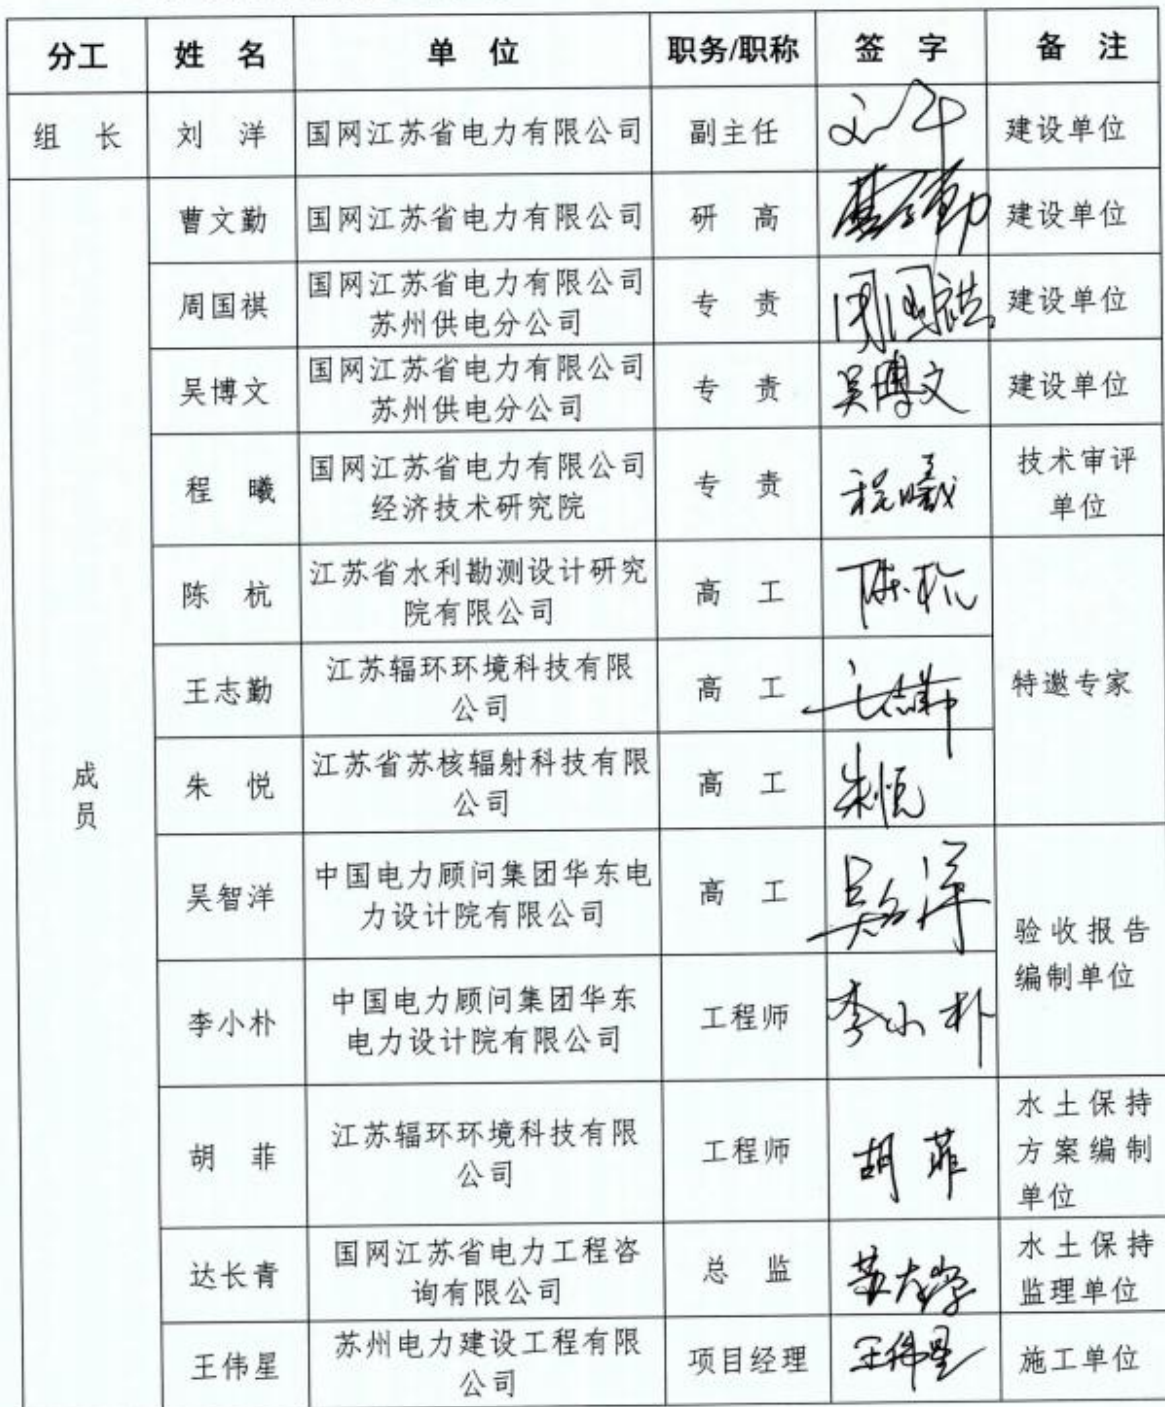 分工 姓 名 单 位 职务/职称 签 字 备 注
组 长 刘 洋 国网江苏省电力有限公司 副主任 建设单位
成
员
曹文勤 国网江苏省电力有限公司 研 高 曹文勤 建设单位
周国祺 国网江苏省电力有限公司
苏州供电分公司 专 责 周国祺 建设单位
吴博文 国网江苏省电力有限公司
苏州供电分公司 专 责 吴博文 建设单位
程 曦 国网江苏省电力有限公司
经济技术研究院 专 责 程曦 技术审评
单位
陈 杭 江苏省水利勘测设计研究
院有限公司 高 工 陈杭
王志勤 江苏辐环环境科技有限
公司 高 工 特邀专家
朱 悦 江苏省苏核辐射科技有限
公司 高 工 朱悦
吴智洋 中国电力顾问集团华东电
力设计院有限公司 高 工
验收报告
编制单位
李小朴 中国电力顾问集团华东
电力设计院有限公司 工程师 李小朴
胡 菲 江苏辐环环境科技有限
公司 工程师 胡菲 水土保持
方案编制
单位
达长青 国网江苏省电力工程咨
询有限公司 总 监 水土保持
监理单位
王伟星 苏州电力建设工程有限
公司 项目经理 王伟星 施工单位